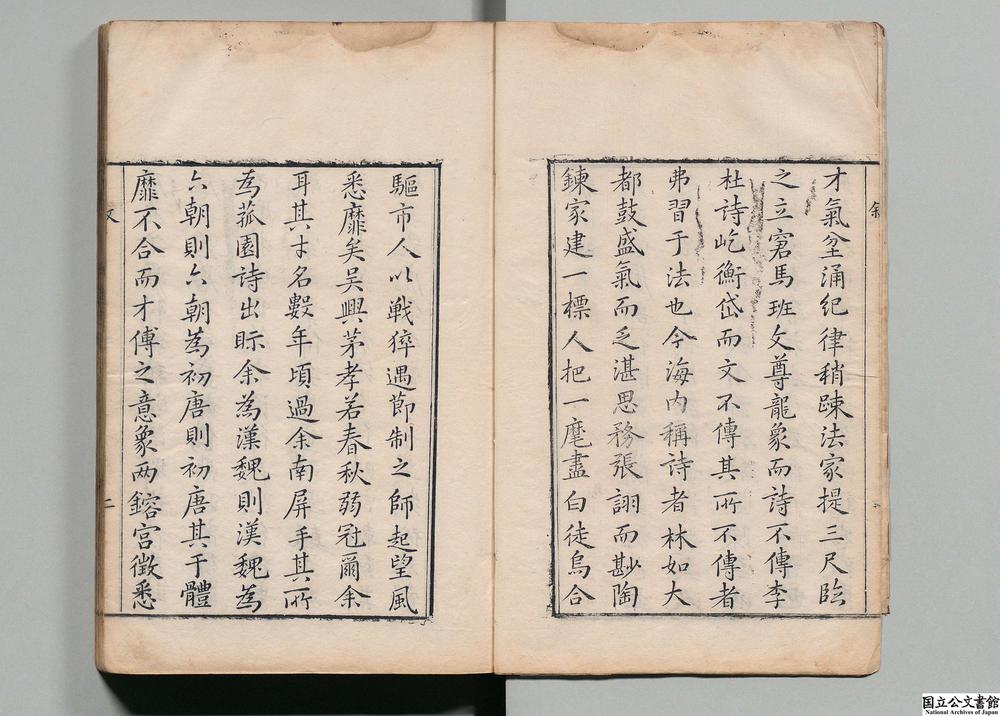 才氣坌涌紀律稍踈法家提三尺臨
之立窘馬班文尊龍象而詩不傳李
杜詩屹衡岱而文不傳其所不傳者
弗習于法也今海内稱詩者林如大
都鼓盛氣而乏湛思務張詡而尠陶
鍊家建一標人把一麾盡白徒烏合
驅市人以戰猝遇節制之師起望風
悉靡矣吳興茅孝若春秋弱冠爾余
耳其才名數年頃過余南屏手其所
為菰園詩出眎余為漢魏則漢魏為
六朝則六朝為初唐則初唐其于體
靡不合而才傅之意象兩鎔宫徵悉
二
国立公文書館
National Archives of Japan